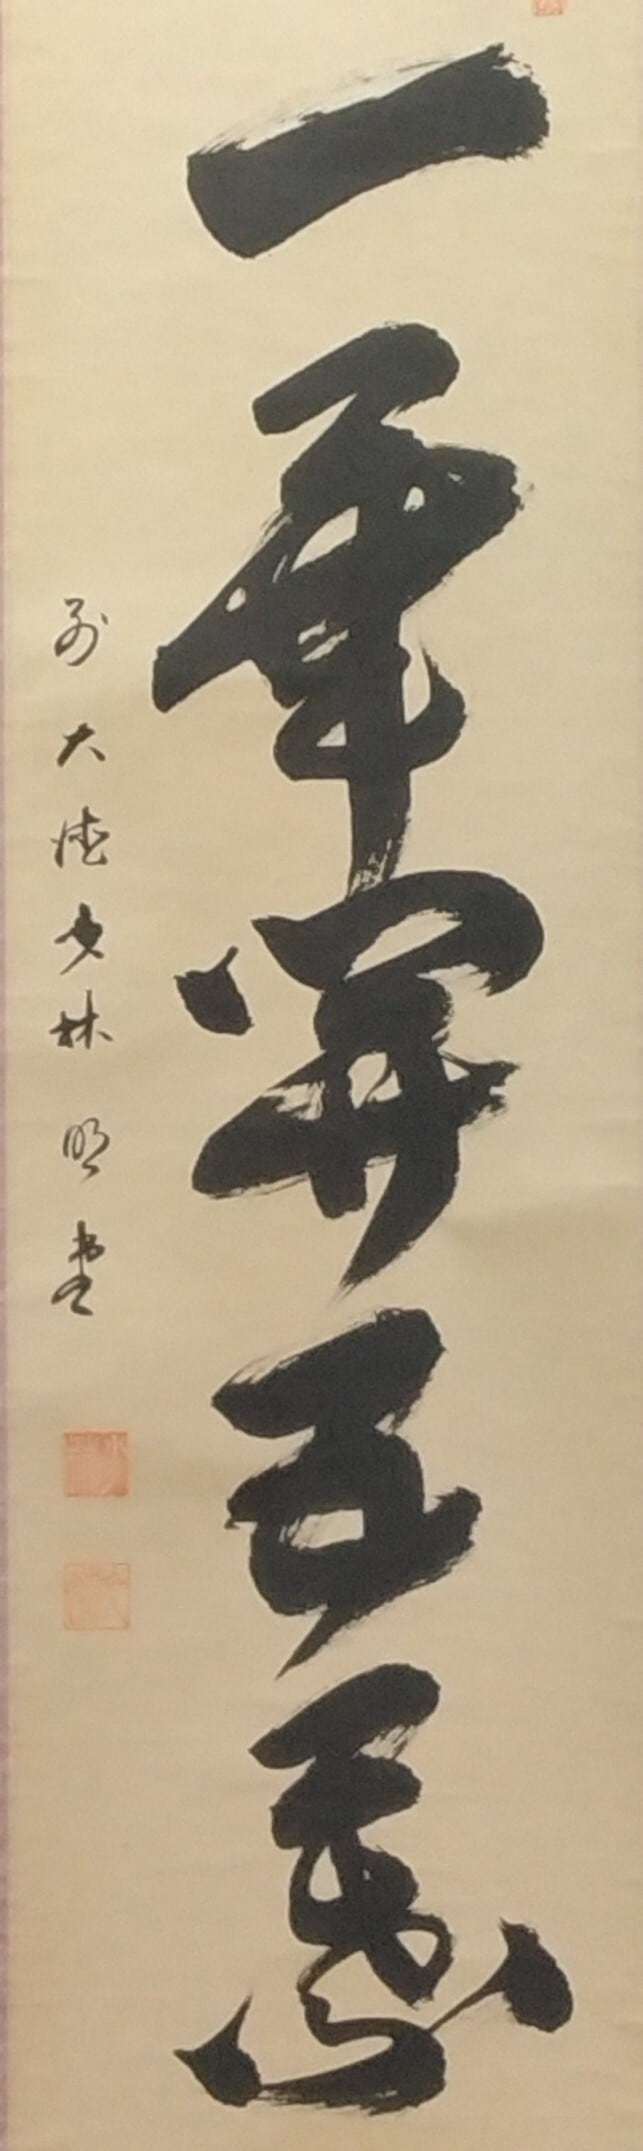 一華開五葉
前大徳少林明堂